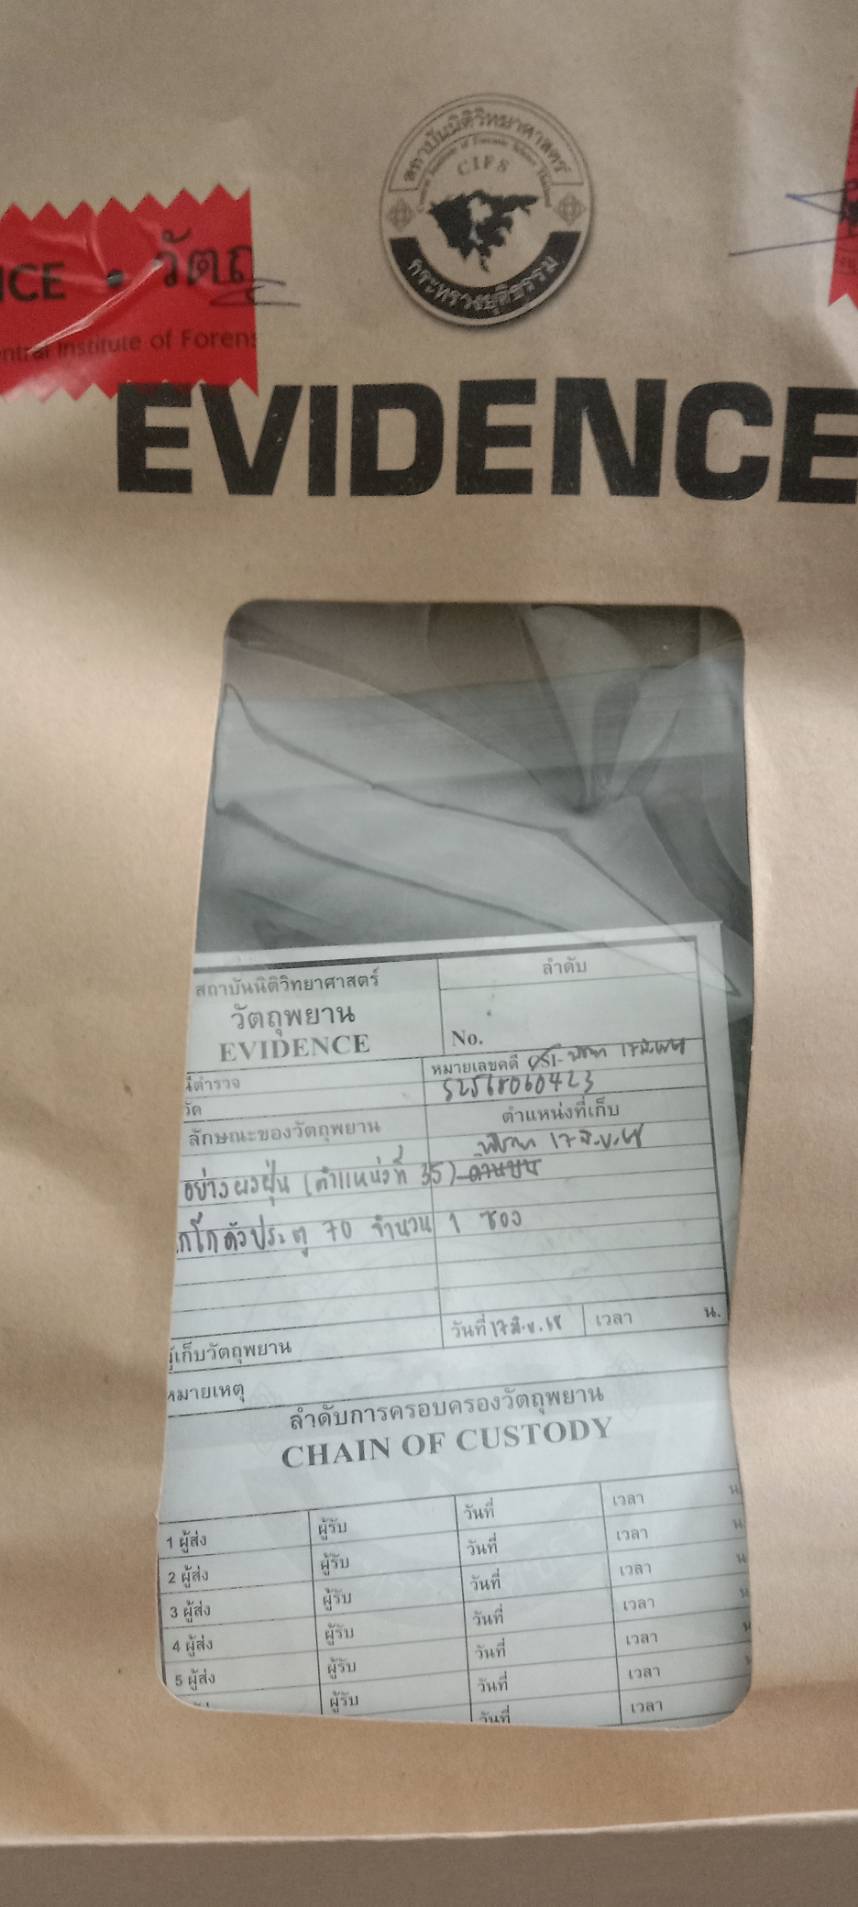 สถาบันนิติวิทยาศาสตร์
Central Institute of Forensic Science Thailand
CIFS
กระทรวงยุติธรรม
NCE • วัตถ
entral Institute of Forens
EVIDENCE
สถาบันนิติวิทยาศาสตร์
วัตถุพยาน
EVIDENCE
ลำดับ
No.
ตำรวจ
หมายเลขคดี
วัด
ลักษณะของวัตถุพยาน
ตำแหน่งที่เก็บ
17 มิ.ย. 68
อย่างผงฝุ่น (ตำแหน่งที่ 35) ด้านบน
ตัวประตู 70 จำนวน 1 ซอง
วันที่ 17 มิ.ย. 68 เวลา น.
ผู้เก็บวัตถุพยาน
หมายเหตุ
ลำดับการครอบครองวัตถุพยาน
CHAIN OF CUSTODY
1 ผู้ส่ง ผู้รับ วันที่ เวลา น.
2 ผู้ส่ง ผู้รับ วันที่ เวลา น
3 ผู้ส่ง ผู้รับ วันที่ เวลา น
4 ผู้ส่ง ผู้รับ วันที่ เวลา น
5 ผู้ส่ง ผู้รับ วันที่ เวลา น
ผู้รับ วันที่ เวลา
วันที่ เวลา